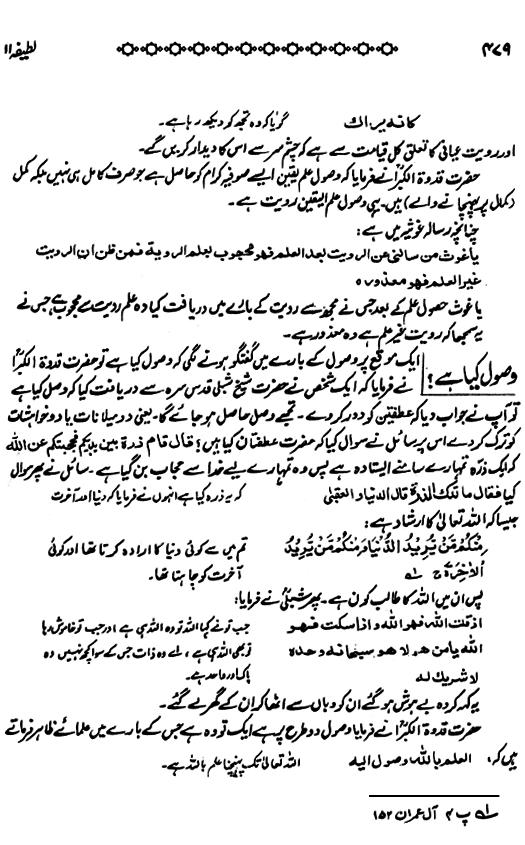 ۴۷۹ لطیفہ ۱۱
کانہ یراک گویا کہ وہ تجھ کو دیکھ رہا ہے۔
اور رویت عیانی کا تعلق کل قیامت سے ہے کہ چشم سر سے اس کا دیدار کریں گے۔
حضرت قدوۃ الکبراؒ نے فرمایا کہ وصول علم یقین ایسے صوفیہ کرام کو حاصل ہے جو صرف کامل ہی نہیں بلکہ مکمل
(کمال پر پہنچانے والے) ہیں۔ یہی وصول علم الیقین رویت ہے۔
چنانچہ رسالہ غوثیہ میں ہے:
یا غوث من سالنی عن الرویت بعد العلم فھو محجوب بعلم الرویۃ فمن ظن ان الرویت
غیر العلم فھو معذور ہ
یا غوث حصول علم کے بعد جس نے مجھ سے رویت کے بارے میں دریافت کیا وہ علم رویت سے محجوب ہے جس نے
یہ سمجھا کہ رویت بغیر علم ہے وہ معذور ہے۔
وصول کیا ہے؟ ایک موقع پر وصول کے بارے میں گفتگو ہونے لگی کہ وصول کیا ہے تو حضرت قدوۃ الکبراؒ
نے فرمایا کہ ایک شخص نے حضرت شیخ شبلی قدس سرہ سے دریافت کیا کہ وصل کیا ہے
تو آپ نے جواب دیا کہ عطفین کو دور کر دے۔ تجھے وصل حاصل ہو جائے گا۔ یعنی دو میلانات یا دو خواہشات
کو ترک کر دے اس پر سائل نے سوال کیا کہ حضرت عطفتان کیا ہیں؟ قال قام ذرۃ بین یدیکم فحجبتکم عن اللہ
کہ ایک ذرہ تمہارے سامنے ایستادہ ہے پس وہ تمہارے لیے خدا سے حجاب بن گیا ہے۔ سائل نے پھر سوال
کیا فقال ما تلک الذرۃ قال الدنیا و العقبیٰ کہ یہ ذرہ کیا ہے انہوں نے فرمایا کہ دنیا اور آخرت
جیسا کہ اللہ تعالیٰ کا ارشاد ہے:
مِنْكُمْ مَّنْ يُّرِيْدُ الدُّنْيَا وَمِنْكُمْ مَّنْ يُّرِيْدُ تم میں سے کوئی دنیا کا ارادہ کرتا تھا اور کوئی
الْاٰخِرَةَ ج لہ آخرت کو چاہتا تھا۔
پس ان میں اللہ کا طالب کون ہے۔ پھر شبلیؒ نے فرمایا:
اذ قلت اللہ فھو اللہ و اذا سکت فھو جب تو نے کہا اللہ تو وہ اللہ ہی ہے اور جب تو خاموش رہا
اللہ یامن ھو لا ھو سبحانہ وحدہ تو بھی اللہ ہی ہے، اے وہ ذات جس کے سوا کچھ نہیں وہ
لا شریک لہ پاک اور واحد ہے۔
یہ کہہ کر وہ بے ہوش ہو گئے ان کو وہاں سے اٹھا کر ان کے گھر لے گئے۔
حضرت قدوۃ الکبراؒ نے فرمایا وصول دو طرح پر ہے ایک تو وہ ہے جس کے بارے میں علمائے ظاہر فرماتے
ہیں کہ، العلم باللہ وصول الیہ اللہ تعالیٰ تک پہنچنا علم باللہ ہے۔
لہ پ ۴ آل عمران ۱۵۲